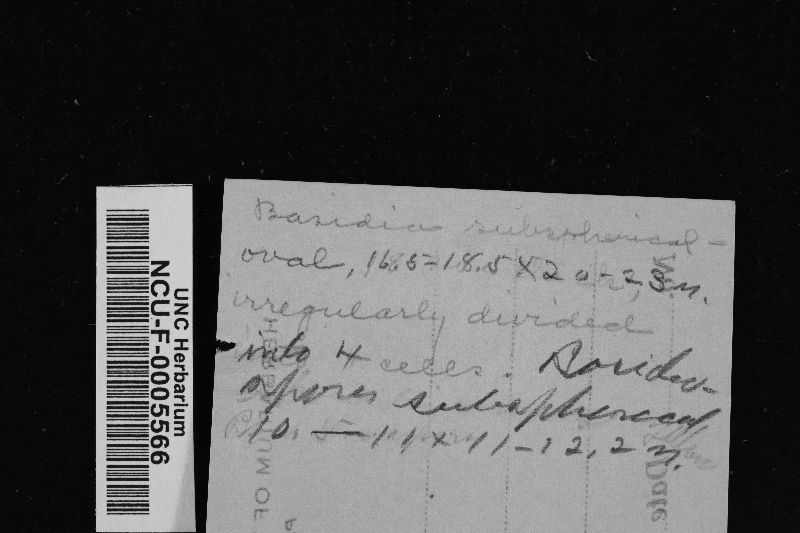 Basidia subspherical-
oval, 16.5-18.5 × 20-23 µ.
irregularly divided
into 4 cells.
spores subspherical
10. — 11 × 11-12.2 µ.
UNC Herbarium
NCU-F-0005566
HERBARIUM OF
Date